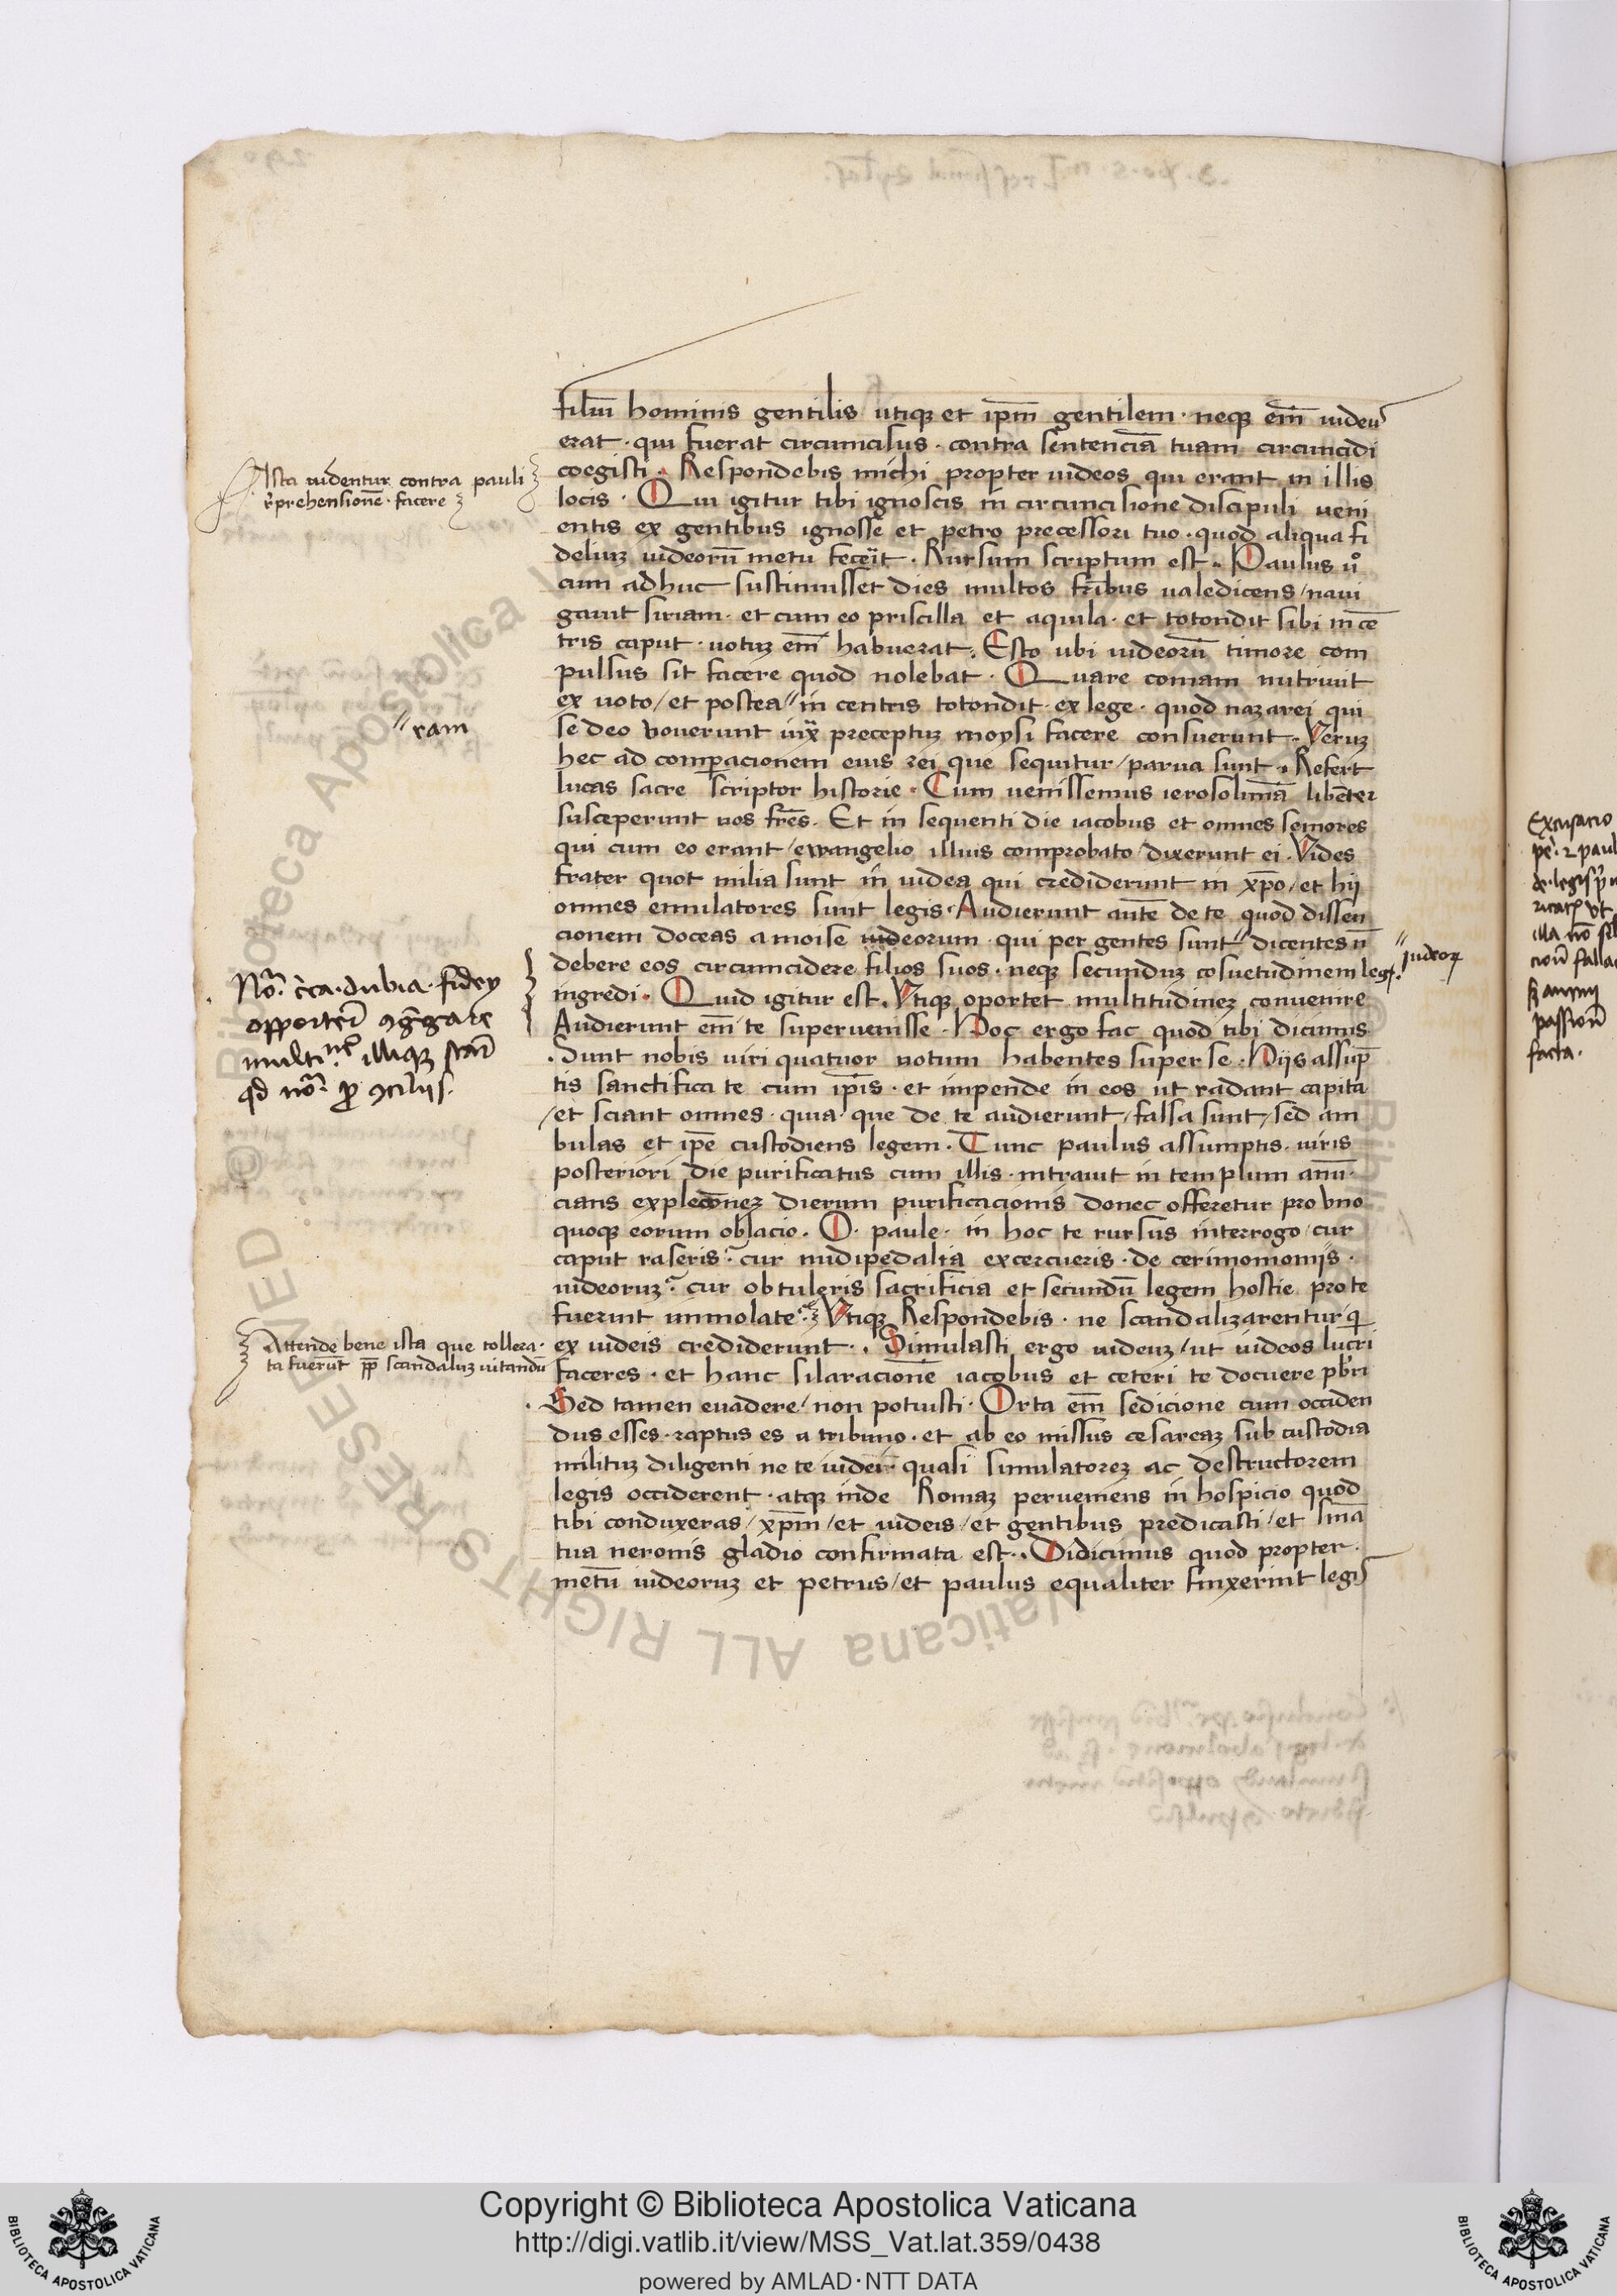 filiū hominis gentilis utiqꝫ et ip̄m gentilem · neqꝫ em̄ iudeu
erat · qui fuerat circumcisus · contra sentenciā tuam circumcidi
coegisti · Respondebis michi propter iudeos qui erant in illis
locis · Qui igitur tibi ignoscis in circumcisione discipuli ueni
entis ex gentibus ignosse et petro precessori tuo · quod aliqua fi
deliuꝫ iudeorū metu fecerit · Rursum scriptum est · Paulus ů
cum adhuc sustinuisset dies multos fr̄ibus ualedicens / naui
gauit siriam · et cum eo priscilla et aquila · et totondit sibi in ce
tris caput · uotuꝫ em̄ habuerat · Esto ubi iudeorū timore com
pulsus sit facere quod nolebat · Quare comam nutriuit
ex uoto / et postea // in centris totondit · ex lege · quod nazarei qui
se deo vouerunt iux̄ preceptuꝫ moysi facere consuerunt · Veruꝫ
hec ad comparacionem eius rei que sequitur / parua sunt · Refert
lucas sacre scriptor historie · Cum uenissemus ierosolimā libēter
susceperunt nos fr̄es · Et in sequenti die iacobus et omnes seniores
qui cum eo erant / ewangelio illius comprobato / dixerunt ei · Vides
frater quot milia sunt in iudea qui crediderunt in xp̄o / et hij
omnes emulatores sunt legis · Audierunt autē de te quod dissen
cionem doceas a moise iudeorum · qui per gentes sunt // dicentes n̄
debere eos circumcidere filios suos · neqꝫ secunduꝫ cōsuetudinem
ingredi · Quid igitur est · Vtiqꝫ oportet multitudineꝫ convenire
Audierunt em̄ te supervenisse · Hoc ergo fac quod tibi dicimus
· Sunt nobis uiri quatuor uotum habentes super se · Hijs assūp
tis sanctifica te cum ip̄is · et impende in eos ut radant capita
/ et sciant omnes · quia · que de te audierunt / falsa sunt / sed am
bulas et ip̄e custodiens legem · Tunc paulus assumptis · uiris
posteriori die purificatus cum illis · intrauit in templum anū ·
cians explecōneꝫ dierum purificacionis donec offeretur pro vno
quoqꝫ eorum oblacio · O · paule · in hoc te rursus interrogo / cur
caput raseris · cur nudipedalia excercueris · de cerimomonijs ·
iudeoruꝫ · cur obtuleris sacrificia et secundū legem hostie pro te
fuerint immolate · Vtiqꝫ Respondebis · ne scandalizarentur q̄
ex iudeis crediderunt · Simulasti ergo iudeuꝫ / ut iudeos lucri
faceres · et hanc silaracionē iacobus et ceteri te docuere pb̄ri
· Sed tamen euadere / non potuisti · Orta em̄ sedicione cum occiden
dus esses · raptus es a tribuno · et ab eo missus cesareaꝫ sub custodia
milituꝫ diligenti ne te iudei quasi simulatoreꝫ ac destructorem
legis occiderent · atqꝫ inde Romaꝫ perueniens in hospicio quod
tibi conduxeras / xp̄m / et iudeis / et gentibus predicasti / et sn̄ia
tua neronis gladio confirmata est · Didicimus quod propter ·
metū iudeoruꝫ et petrus / et paulus equaliter finxerint legis
Ista uidentur contra pauli
rep̄rehensionē · facere
// ram
No · c̄ca · dubia · fidey
multi
Attende bene ista que tollera ·
ta fuerūt pp̄ scandaluꝫ uitandū
// iudeoꝝ
Excusacio
passionē
facta ·
Copyright © Biblioteca Apostolica Vaticana
http://digi.vatlib.it/view/MSS_Vat.lat.359/0438
powered by AMLAD·NTT DATA
BIBLIOTECA APOSTOLICA VATICANA
BIBLIOTECA APOSTOLICA VATICANA